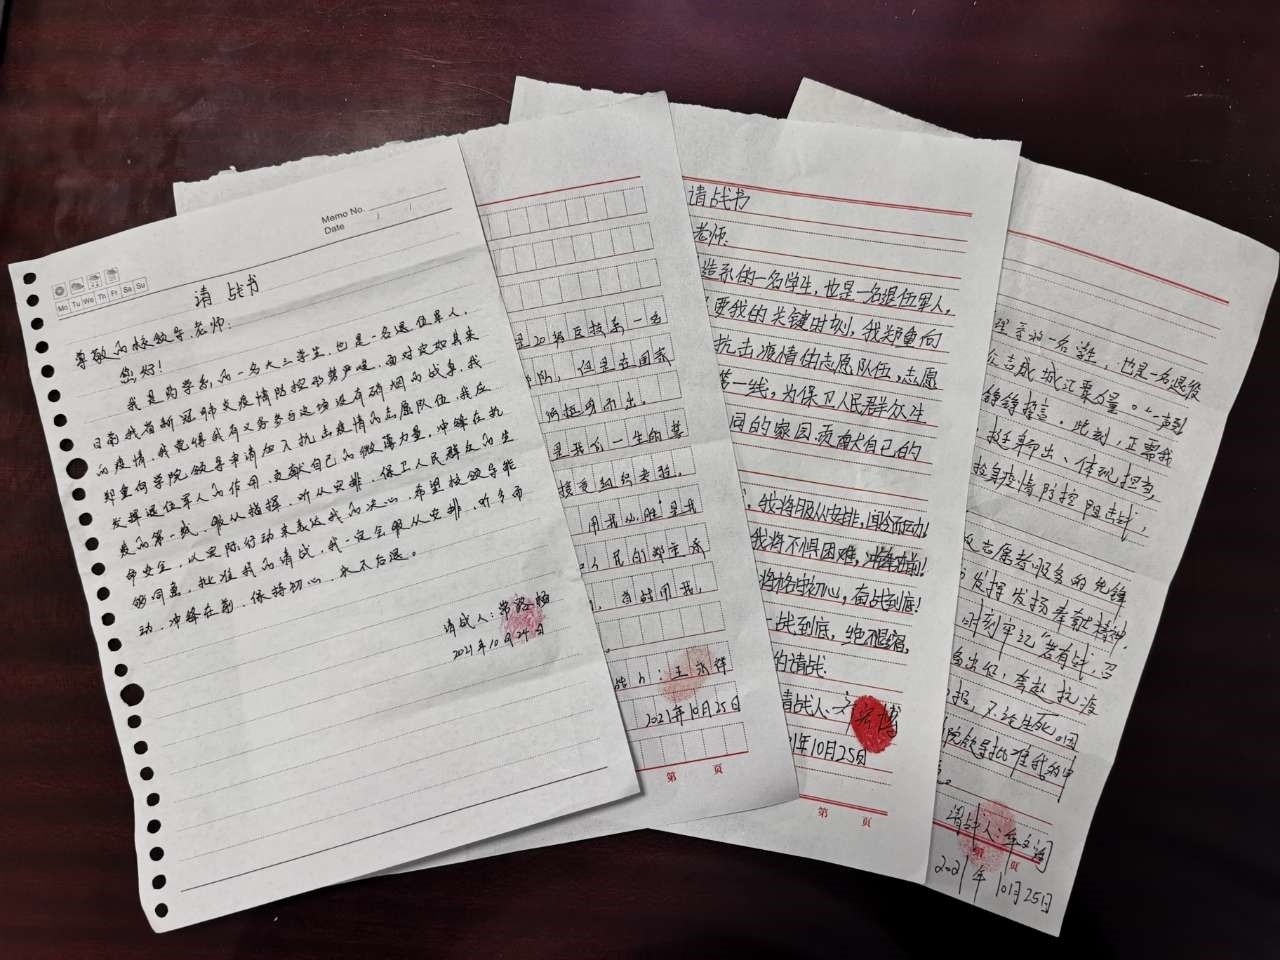 Memo No.
Date
Mo Tu We Th Fr Sa Su
请战书
尊敬的校领导、老师：
您好！
我是药学系的一名大二学生，也是一名退伍军人，
日前我省新冠肺炎疫情防控形势严峻，面对突如其来
的疫情，我觉得我有义务参与这场没有硝烟的战争，我
郑重向学院领导申请加入抗击疫情的志愿队伍，我应
发挥退伍军人的作用，贡献自己的微薄力量，冲锋在抗
疫的第一线，服从指挥，听从安排，保卫人民群众的生
命安全，以实际行动来表达我的决心，希望校领导能
够同意，批准我的请战，我一定会服从安排，听令而
动，冲锋在前，保持初心，永不后退。
请战人：常
2021年10月24日
是20级医技系一名
队，但是在国家
挺身而出。
是我们一生的
接受组织考验。
用我必胜 是我
人民的郑重承
，召战用我，
人：王
2021年10月25日
第 页
请战书
老师：
造系的一名学生，也是一名退伍军人，
要我的关键时刻，我郑重向
抗击疫情的志愿队伍，志愿
第一线，为保卫人民群众生
同的家园贡献自己的
，我将服从安排，闻令而动！
我将不惧困难，冲锋在前！
将格守初心，奋战到底！
一战到底，绝不退缩，
的请战．
请战人：
21年10月25日
第 页
理系的一名学生，也是一名退役
众志成城汇聚力量。"一声到
铮铮誓言。此刻，正需我
挺身而出、体现担当，
投身疫情防控阻击战，
及志愿者服务的先锋
发挥发扬奉献精神，
时刻牢记"若有战，召
出征，奔赴抗疫
报，不论生死。因
院领导批准我的申
请战人：
第 页
2021年10月25日